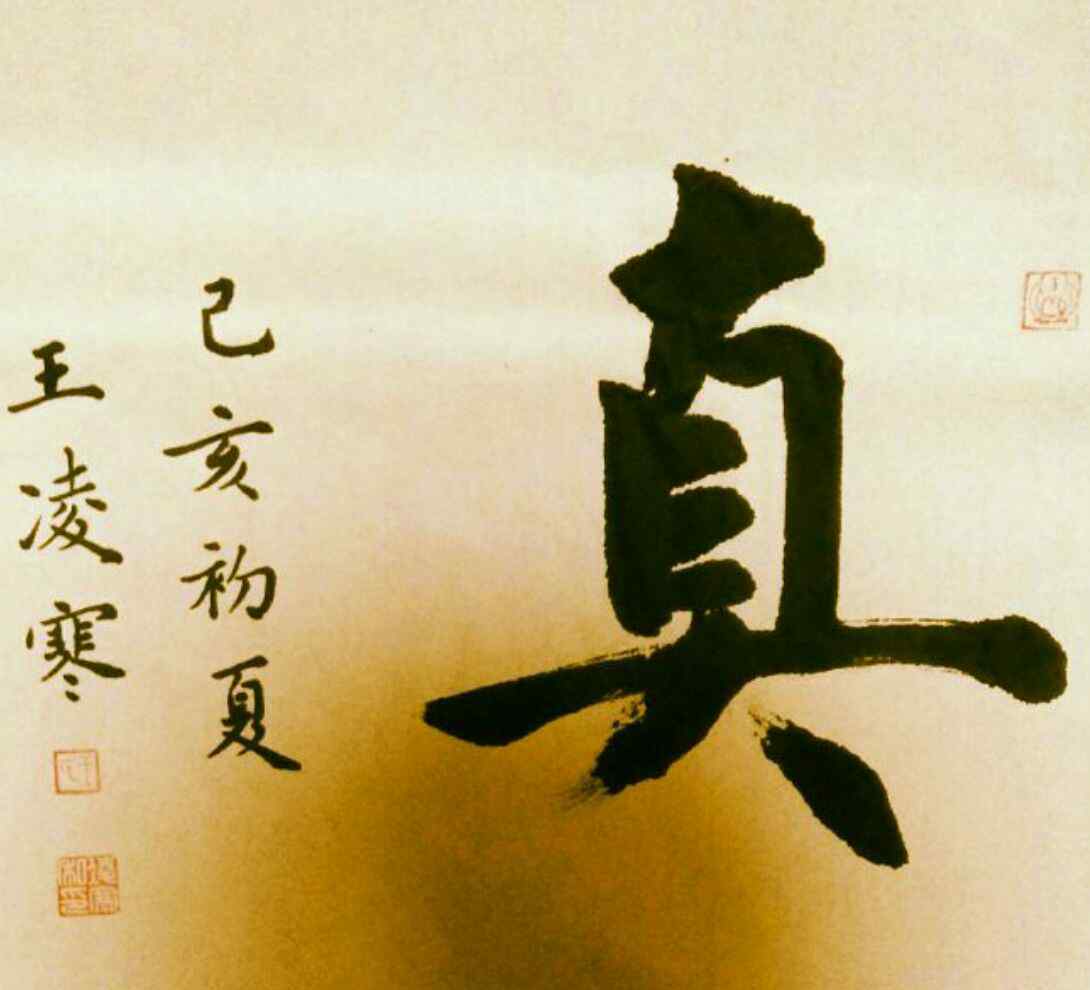 真
己亥初夏
王凌寒